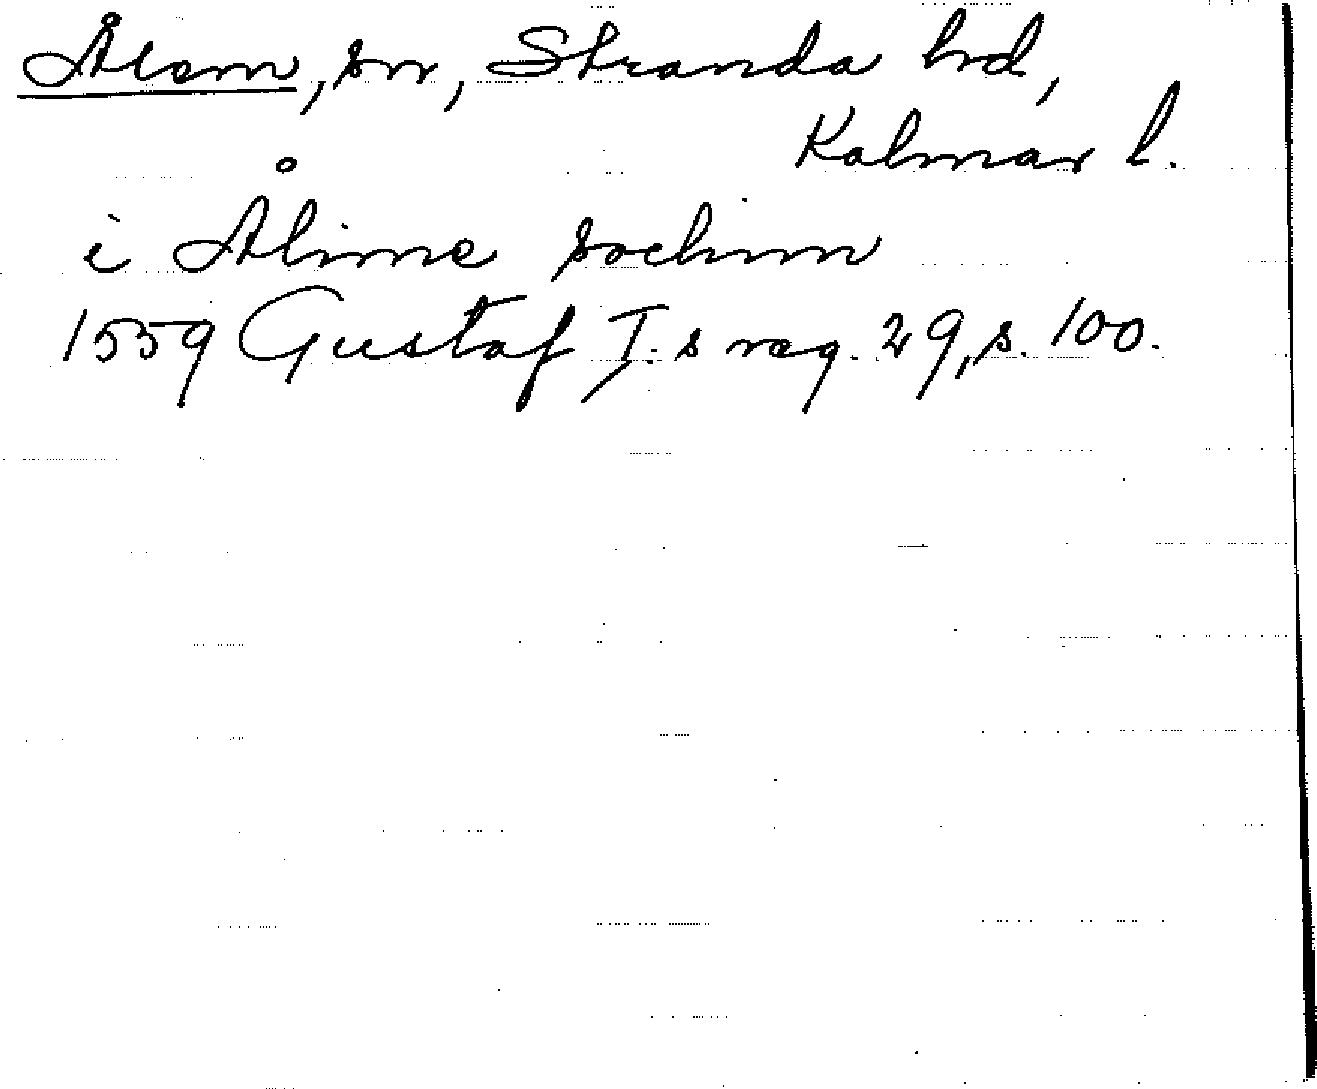 Ålem, sn, Stranda hd,
Kalmar l.
i Ålime sochnn
1559 Gustaf I:s reg. 29, s. 100.